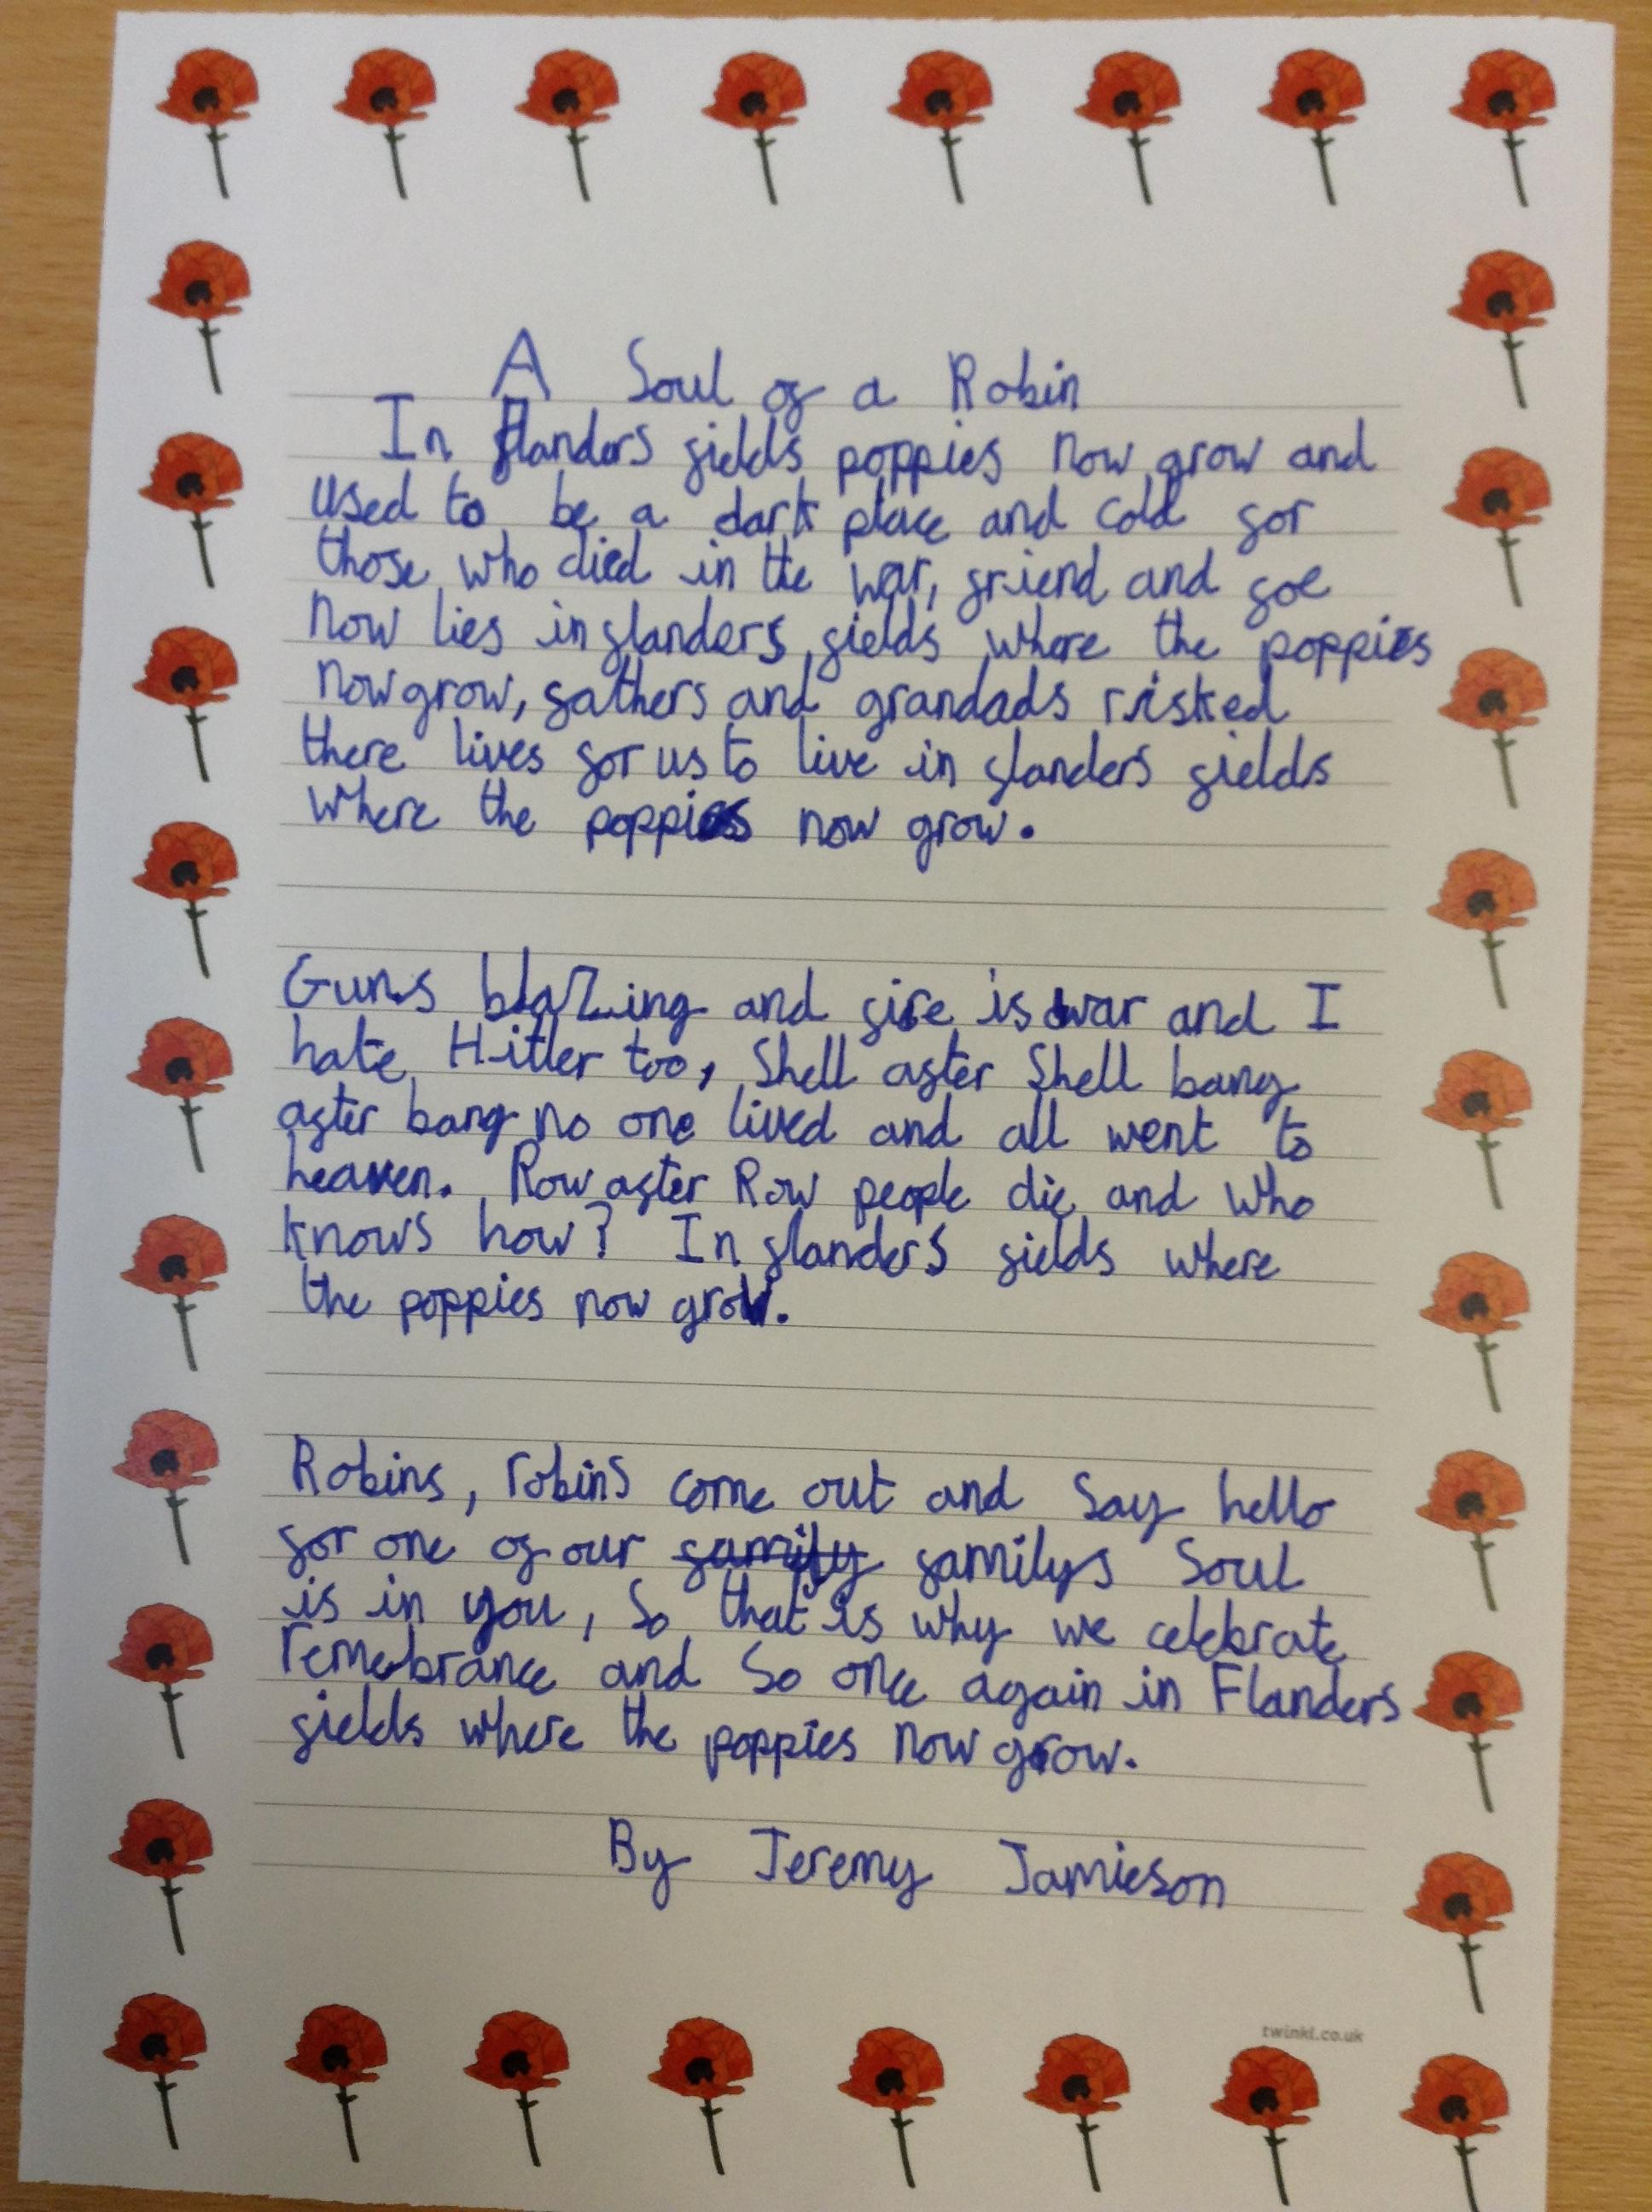 A Soul of a Robin
In flanders fields poppies now grow and
used to be a dark place and cold for
those who died in the war, friend and foe
now lies in flanders fields where the poppies
now grow, fathers and grandads risked
there lives for us to live in flanders fields
where the poppies now grow.
Guns blazing and fire is war and I
hate Hitler too, Shell after Shell bang
after bang no one lived and all went to
heaven. Row after Row people die and who
knows how? In flanders fields where
the poppies now grow.
Robins, robins come out and say hello
for one of our family familys soul
is in you, So that is why we celebrate
remebrance and so once again in Flanders
fields where the poppies now grow.
By Jeremy Jamieson
twinkl.co.uk